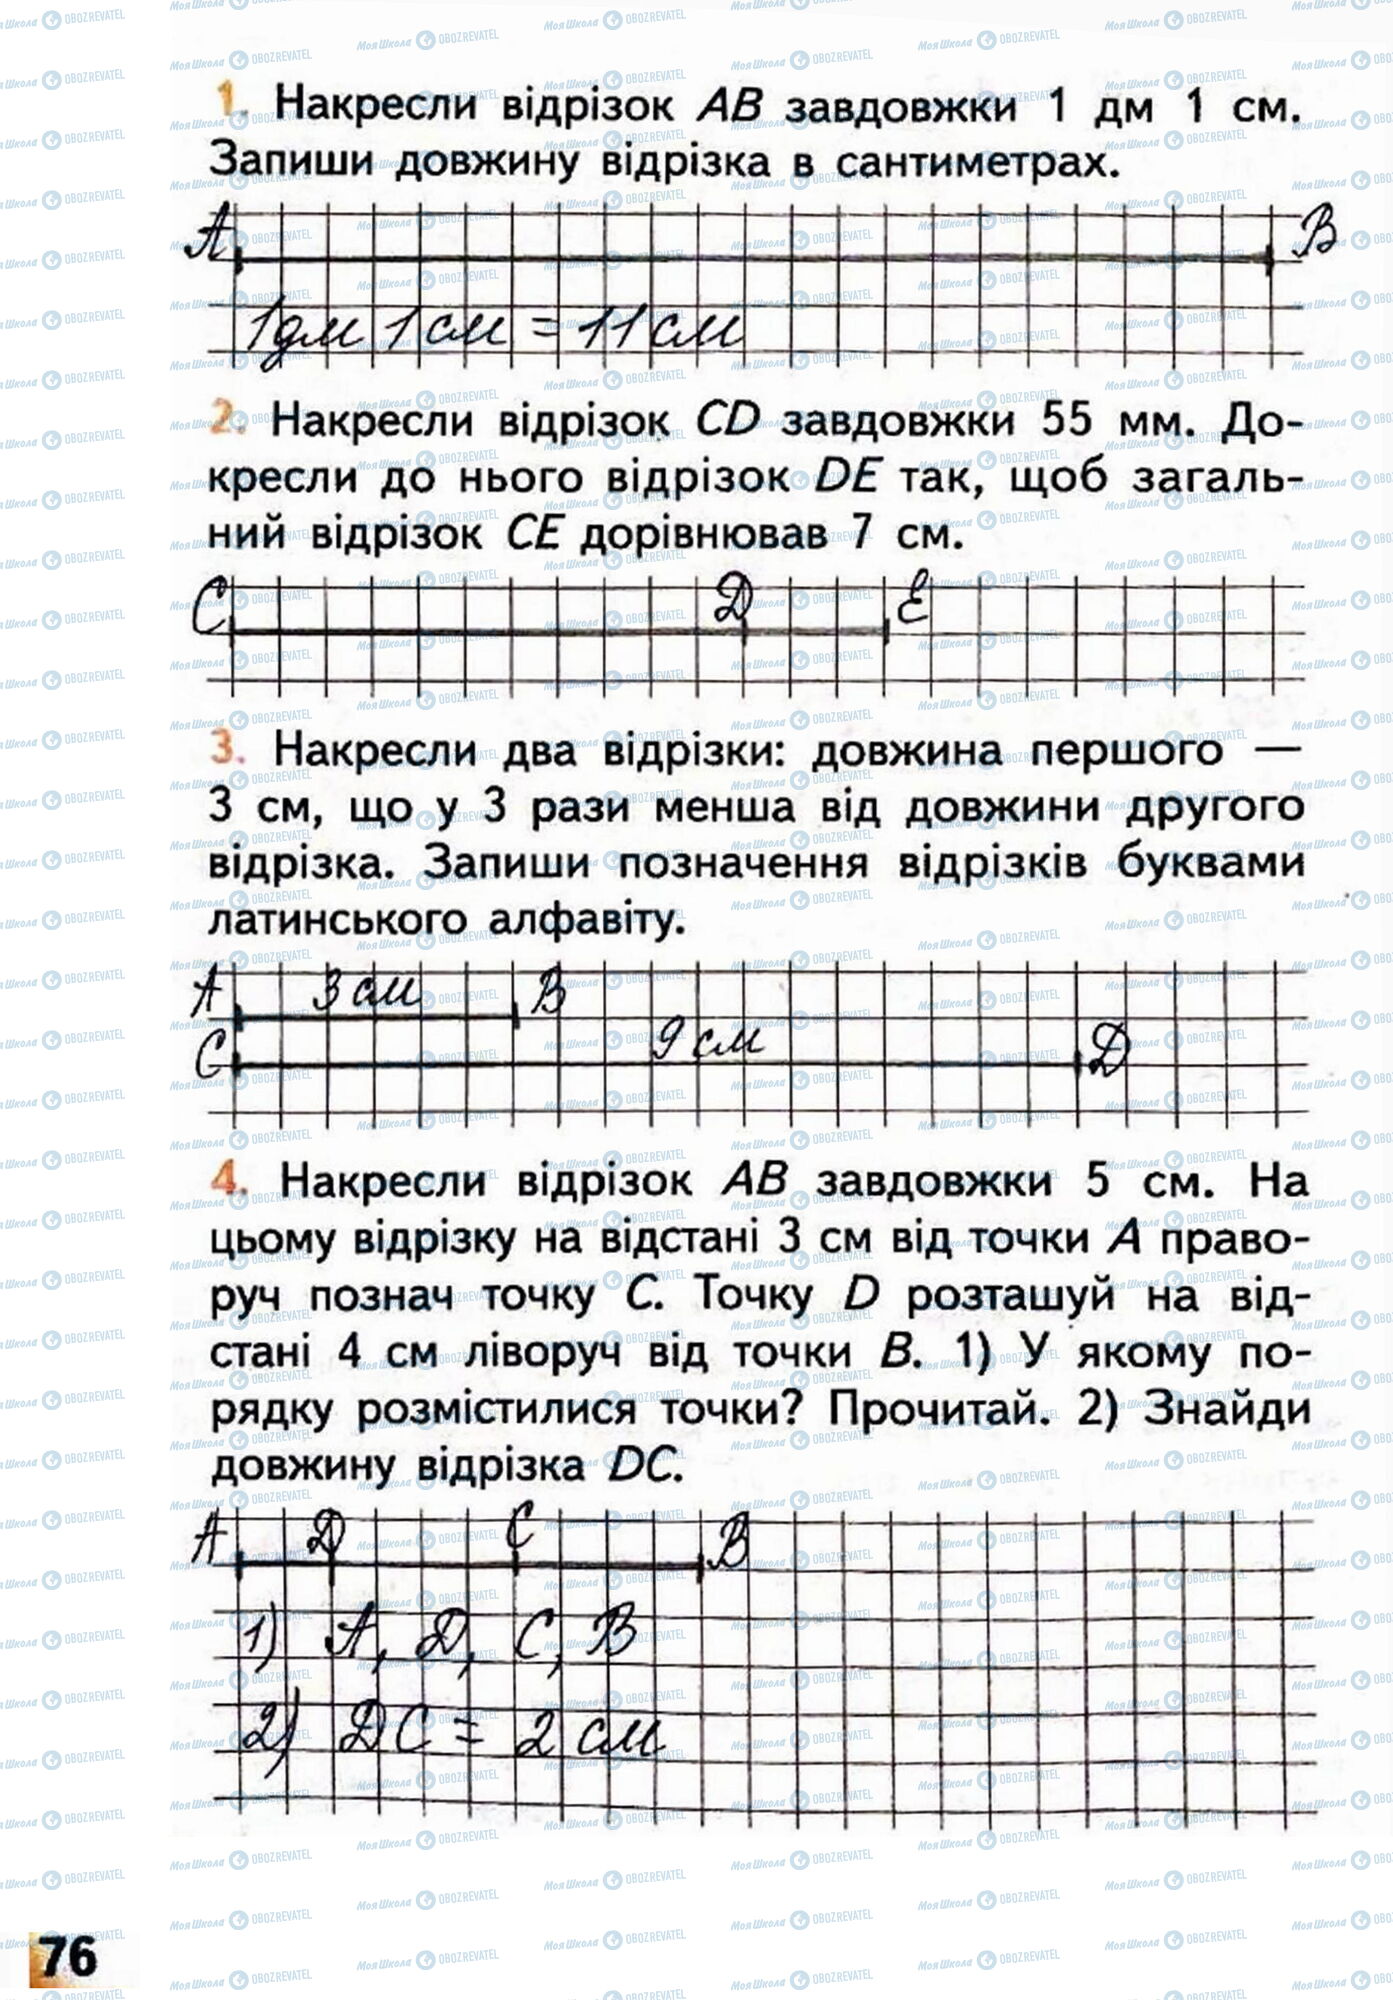 1. Накресли відрізок AB завдовжки 1 дм 1 см.
Запиши довжину відрізка в сантиметрах.
A B
1дм 1см = 11см
2. Накресли відрізок CD завдовжки 55 мм. До-
кресли до нього відрізок DE так, щоб загаль-
ний відрізок CE дорівнював 7 см.
C D E
3. Накресли два відрізки: довжина першого —
3 см, що у 3 рази менша від довжини другого
відрізка. Запиши позначення відрізків буквами
латинського алфавіту.
A 3 см B
C 9 см D
4. Накресли відрізок AB завдовжки 5 см. На
цьому відрізку на відстані 3 см від точки A право-
руч познач точку C. Точку D розташуй на від-
стані 4 см ліворуч від точки B. 1) У якому по-
рядку розмістилися точки? Прочитай. 2) Знайди
довжину відрізка DC.
A D C B
1) A, D, C, B
2) DC = 2 см
76
МояШкола OBOZREVATEL